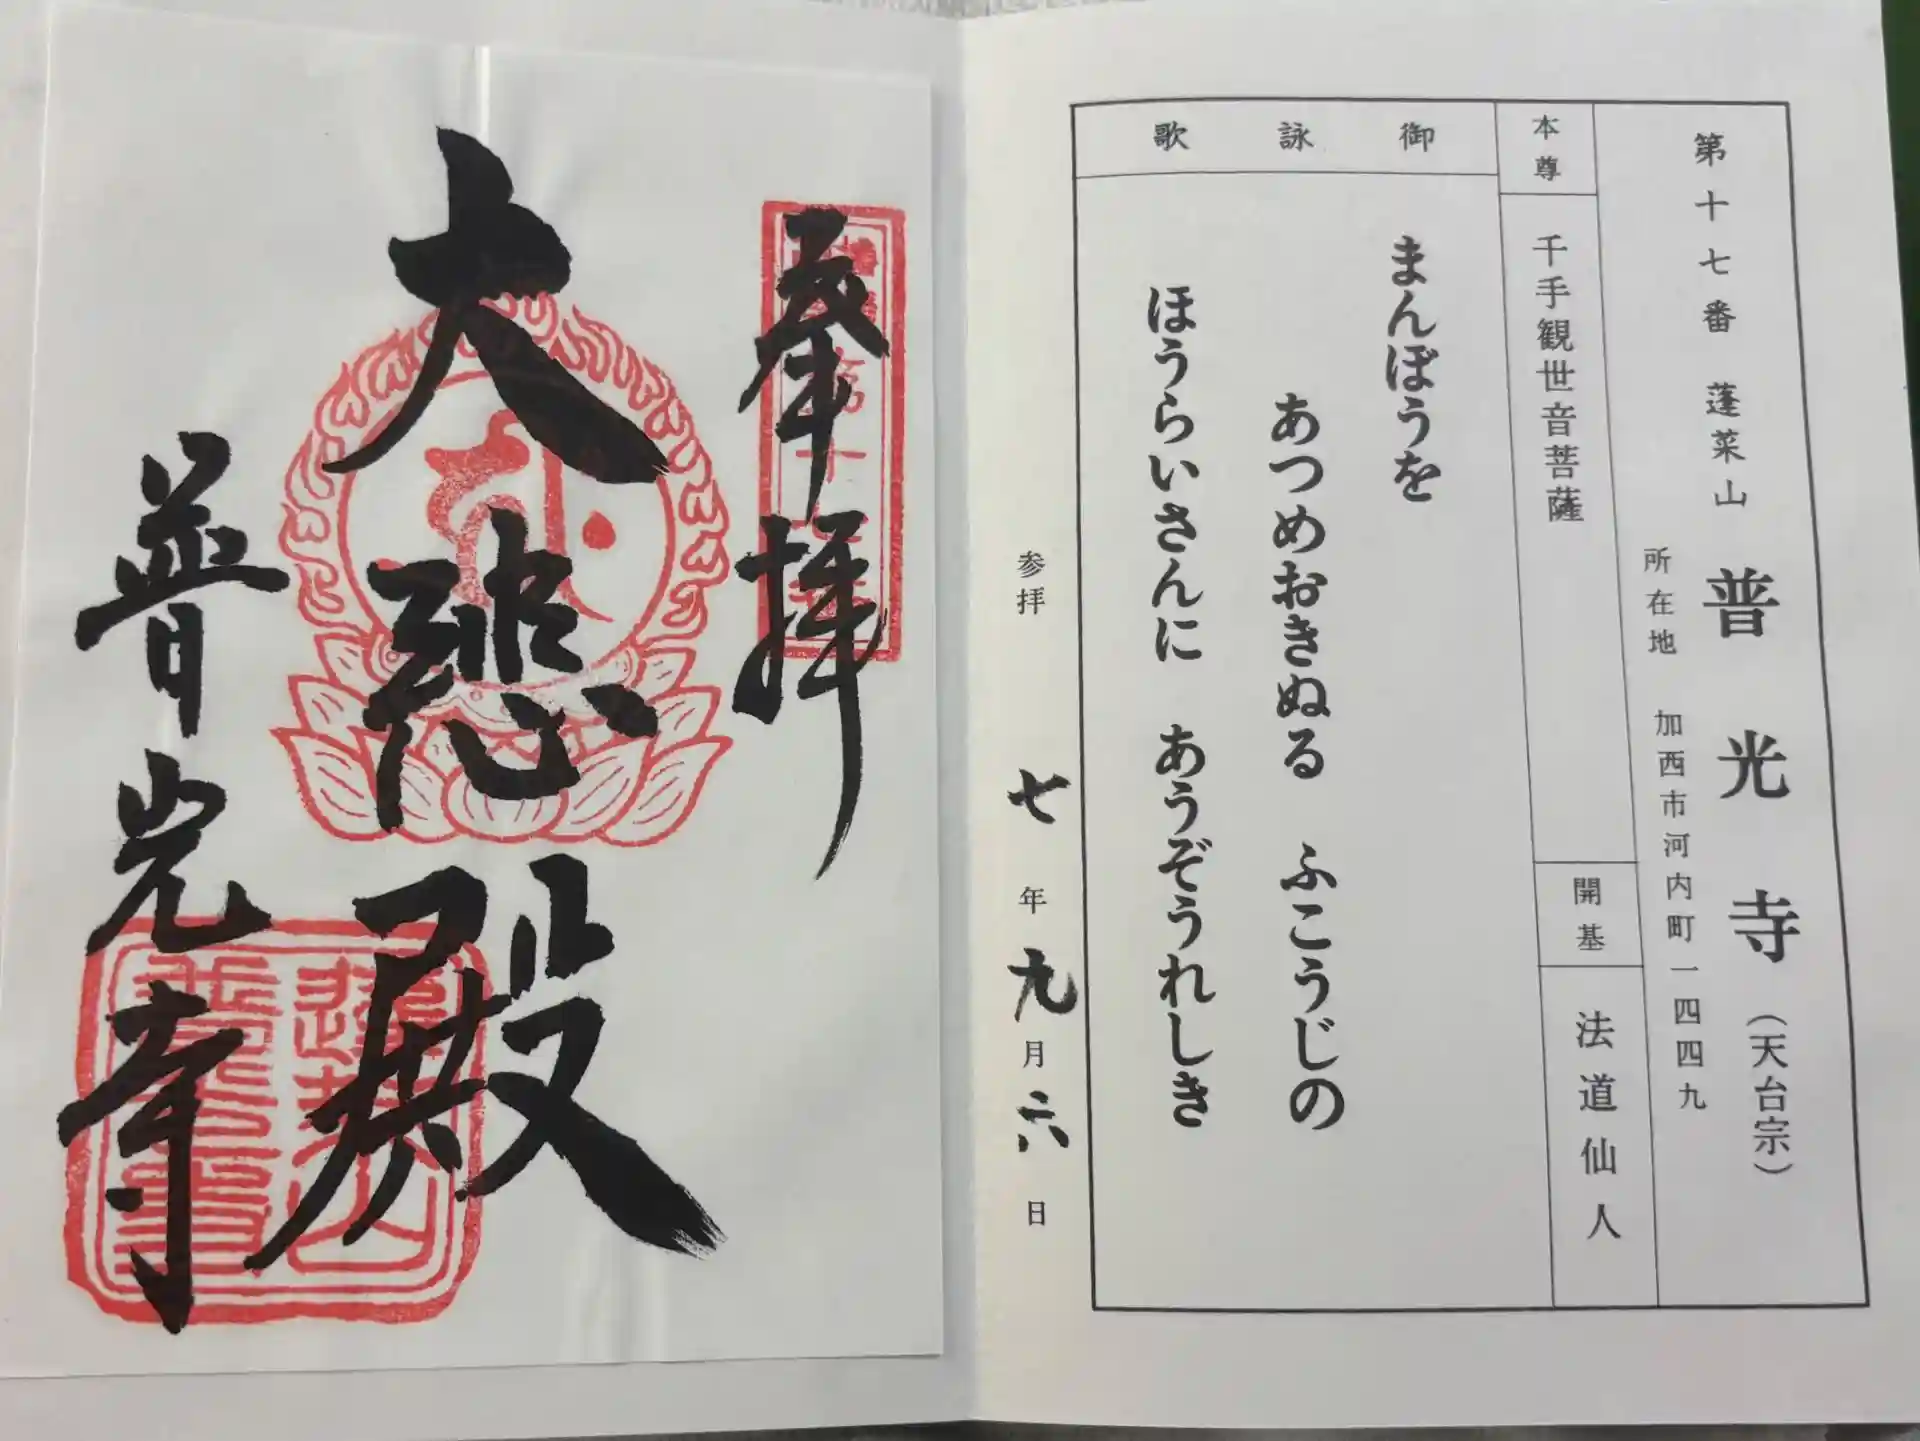 第十七番 蓬菜山 普光寺(天台宗)
所在地 加西市河内町一四四九
本尊
千手観世音菩薩
開基
法道仙人
御詠歌
まんぼうを
あつめおきぬる ふこうじの
ほうらいさんに あうぞうれしき
参拝 七年九月六日
奉拝
大悲殿
普光寺